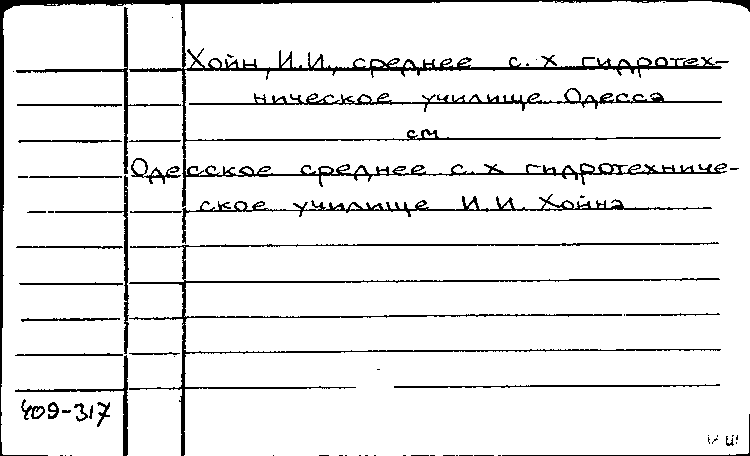 Хойн, И.И., среднее с. х гидротех-
ническое училище Одесса
см
Одесское среднее с. х гидротехниче-
ское училище И.И. Хойна
409-317